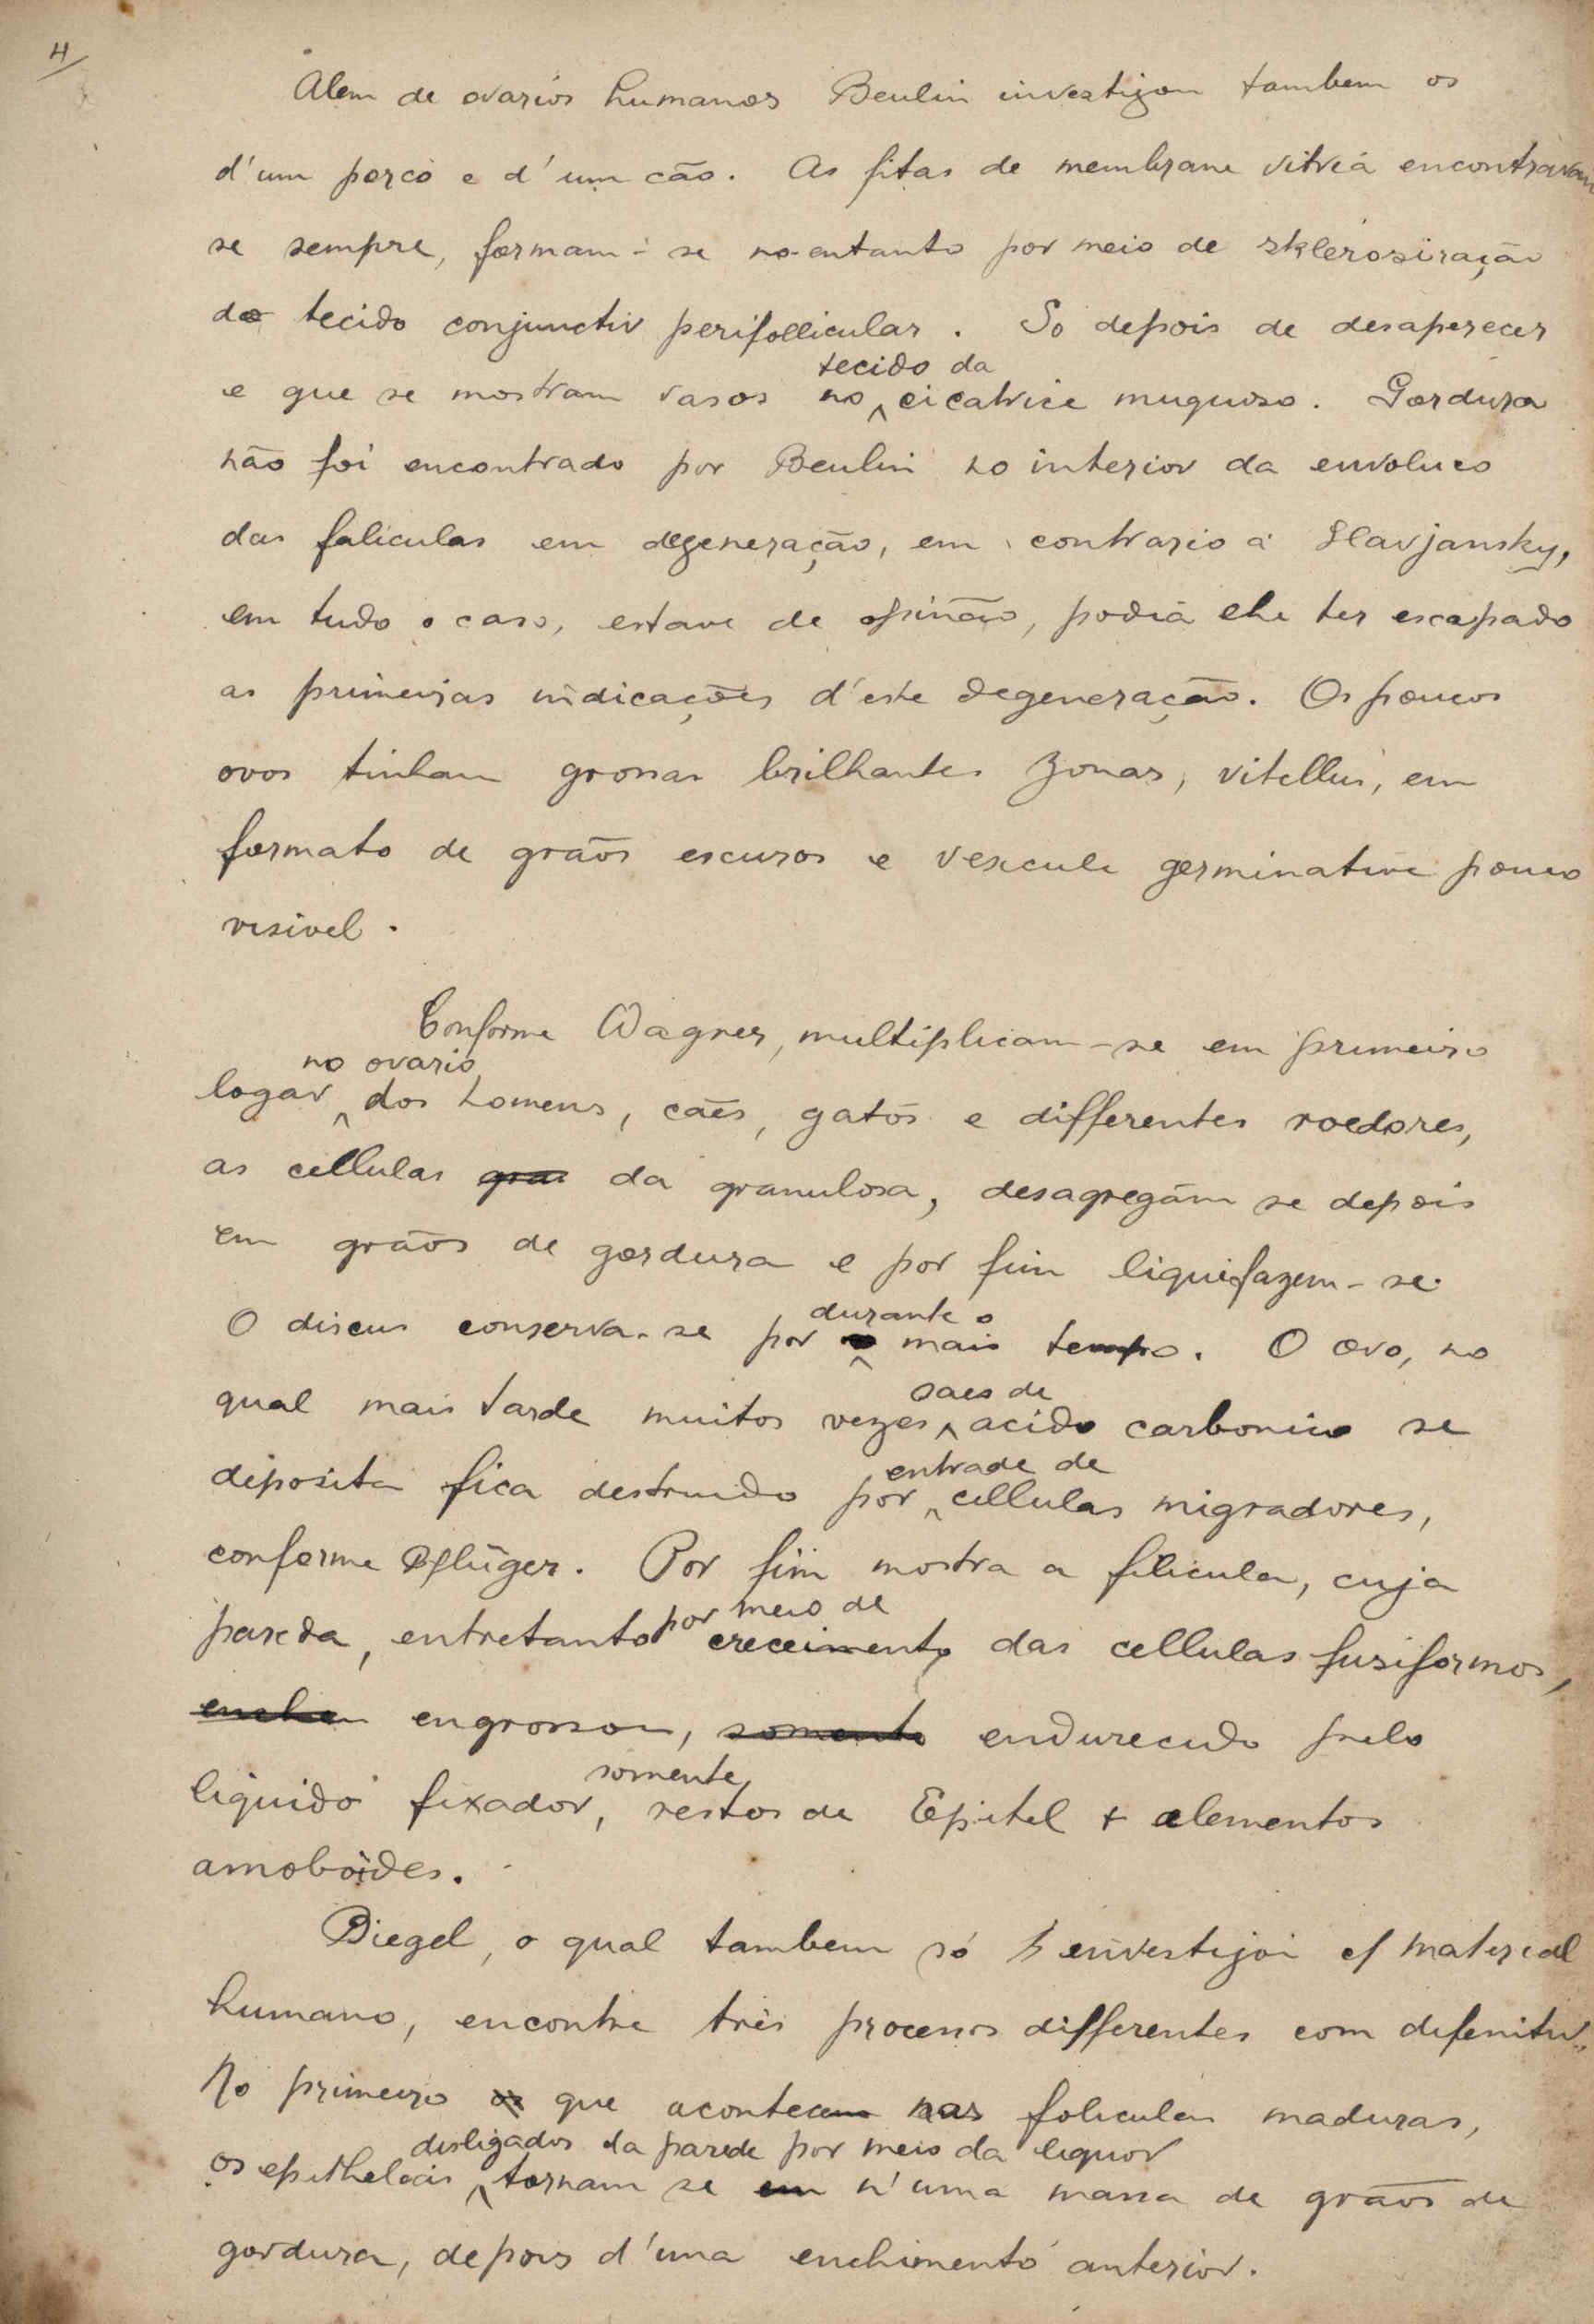 4/
Alem de ovarios humanos Beulin investigou tambem os
d'um porco e d'um cão. As fitas de membrana vitria encontravam
se sempre, formam-se no-entanto por meio de sklerosiração
do tecido conjunctiv perifollicular. So depois de desaperecer
tecido da
e que se mostram vasos no ^ cicatrice muquoso. Gordura
não foi encontrado por Beulin no interior da envoluco
das faliculas em degeneração, em contrario a Slavjansky,
em tudo o caso, estava de opinão, podia elle ter escapado
as primeiras indicações d'este degeneração. Os poucos
ovos tinham grossas brilhantes zonas, vitellus, em
formato de grãos escuros e vesicula germinativa pouco
visivel.
Conforme Wagner, multiplicam-se em primeiro
no ovario
logar ^ dos homens, cães, gatos e differentes roedores,
as cellulas gra da granulosa, desagregam se depois
em grãos de gordura e por fim liquifazem-se.
durante o
O discus conserva-se por ^ mais tempo. O ovo, no
saes de
qual mais tarde muitos vezes ^ acido carbonico se
entrade de
diposita fica destruido por ^ cellulas migradores,
conforme Pflüger. Por fim mostra a filicula, cuja
por meio de
pareda, entretanto creceimento das cellulas fusiformos,
enchen engrossou, somente endurecido pelo
somente
liquido fixador, restos de Epitel + elementos
amoboides.
Biegel, o qual tambem só investigoi c/ material
humano, encontra três processos differentes com difenitiv.
No primeiro os que acontecem nas foliculas maduras,
desligados da parede por meio da liquor
os epitheleais ^ tornam se em n'uma massa de grãos de
gordura, depois d'uma enchimento anterior.